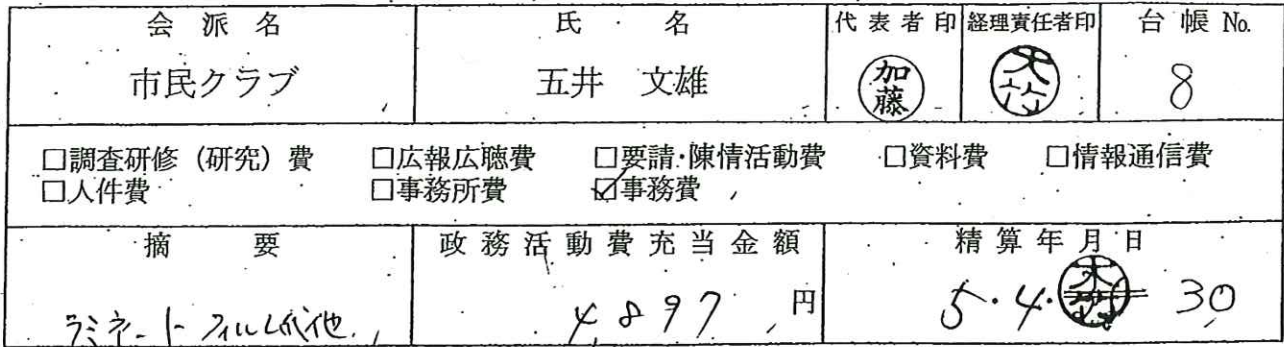 会派名 氏名 代表者印 経理責任者印 台帳 No.
市民クラブ 五井 文雄 加藤 大竹 8
□調査研修（研究）費 □広報広聴費 □要請・陳情活動費 □資料費 □情報通信費
□人件費 □事務所費 ☑事務費
摘要 政務活動費充当金額 精算年月日
ラミネートフィルム 他 4897 円 5・4・ 30